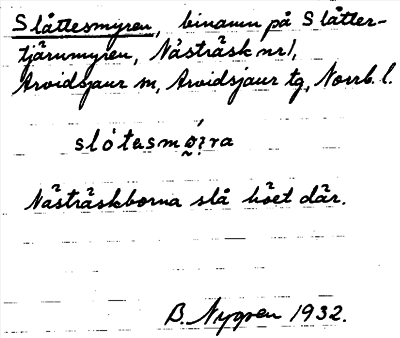 Slåttesmyren, binamn på Slåtter-
tjärnmyren, Nästräsk nr 1,
Arvidsjaur sn, Arvidsjaur tg, Norrb. l.
slótasmø̰ira
Nästräskborna slå höet där.
B. Nygren 1932.